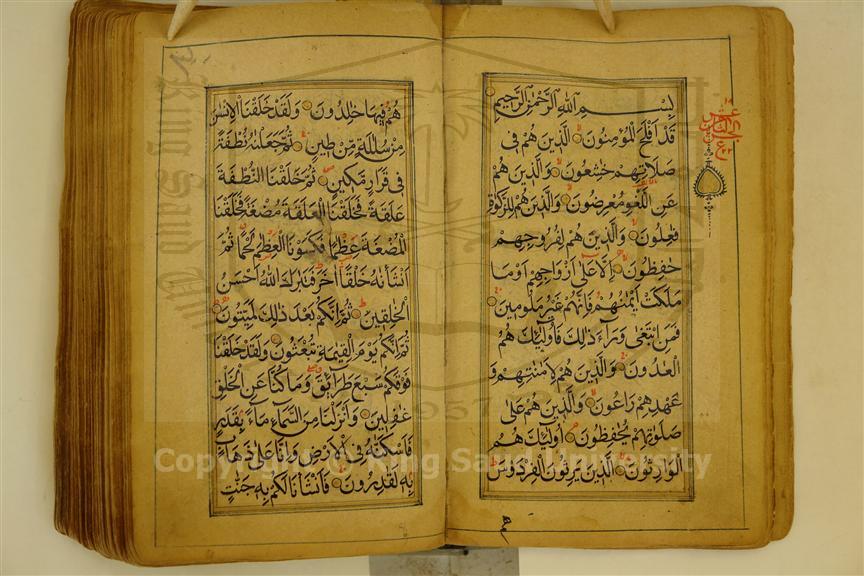 بِسْمِ اللهِ الرَّحْمٰنِ الرَّحِيْمِ
قَدْ اَفْلَحَ الْمُؤْمِنُونَ الَّذِينَ هُمْ فِى
صَلَاتِهِمْ خٰشِعُونَ وَالَّذِينَ هُمْ
عَنِ اللَّغْوِ مُعْرِضُونَ وَالَّذِينَ هُمْ لِلزَّكٰوةِ
فٰعِلُونَ وَالَّذِينَ هُمْ لِفُرُوجِهِمْ
حٰفِظُونَ اِلَّا عَلٰى اَزْوَاجِهِمْ اَوْ مَا
مَلَكَتْ اَيْمٰنُهُمْ فَاِنَّهُمْ غَيْرُ مَلُومِينَ
فَمَنِ ابْتَغٰى وَرَآءَ ذٰلِكَ فَاُولٰٓئِكَ هُمُ
الْعٰدُونَ وَالَّذِينَ هُمْ لِاَمٰنٰتِهِمْ وَ
عَهْدِهِمْ رَاعُونَ وَالَّذِينَ هُمْ عَلٰى
صَلَوٰتِهِمْ يُحٰفِظُونَ اُولٰٓئِكَ هُمُ
الْوَارِثُونَ الَّذِينَ يَرِثُونَ الْفِرْدَوْسَ
هُمْ فِيهَا خٰلِدُونَ وَلَقَدْ خَلَقْنَا الْاِنْسٰنَ
مِنْ سُلٰلَةٍ مِّنْ طِينٍ ثُمَّ جَعَلْنٰهُ نُطْفَةً
فِى قَرَارٍ مَّكِينٍ ثُمَّ خَلَقْنَا النُّطْفَةَ
عَلَقَةً فَخَلَقْنَا الْعَلَقَةَ مُضْغَةً فَخَلَقْنَا
الْمُضْغَةَ عِظٰمًا فَكَسَوْنَا الْعِظٰمَ لَحْمًا ثُمَّ
اَنْشَاْنٰهُ خَلْقًا اٰخَرَ فَتَبٰرَكَ اللهُ اَحْسَنُ
الْخٰلِقِينَ ثُمَّ اِنَّكُمْ بَعْدَ ذٰلِكَ لَمَيِّتُونَ
ثُمَّ اِنَّكُمْ يَوْمَ الْقِيٰمَةِ تُبْعَثُونَ وَلَقَدْ خَلَقْنَا
فَوْقَكُمْ سَبْعَ طَرَآئِقَ وَمَا كُنَّا عَنِ الْخَلْقِ
غٰفِلِينَ وَاَنْزَلْنَا مِنَ السَّمَآءِ مَآءً بِقَدَرٍ
فَاَسْكَنّٰهُ فِى الْاَرْضِ وَاِنَّا عَلٰى ذَهَابٍ
بِهِ لَقٰدِرُونَ فَاَنْشَاْنَا لَكُمْ بِهِ جَنّٰتٍ
Copyright © King Saud University
1957